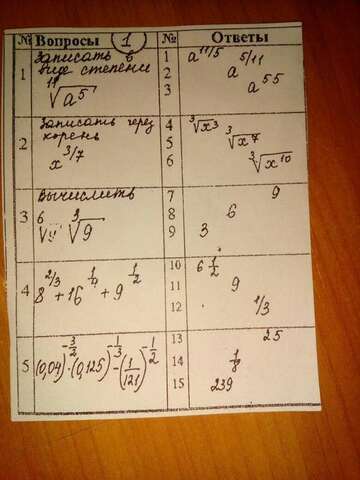 № Вопросы 1 № Ответы
1 Записать в виде степени
¹¹√a⁵
1 a^11/5
2 a^5/11
3 a^55
2 Записать через корень
x^3/7
4 ³√x³
5 ³√x⁷
6 ³√x¹⁰
3 Вычислить
⁶√9 ³√9
7 9
8 6
9 3
4 8^2/3 + 16^1/4 + 9^1/2
10 6 1/2
11 9
12 1/3
5 (0,04)^-3/2 · (0,125)^-1/3 - (1/121)^-1/2
13 25
14 1/8
15 239